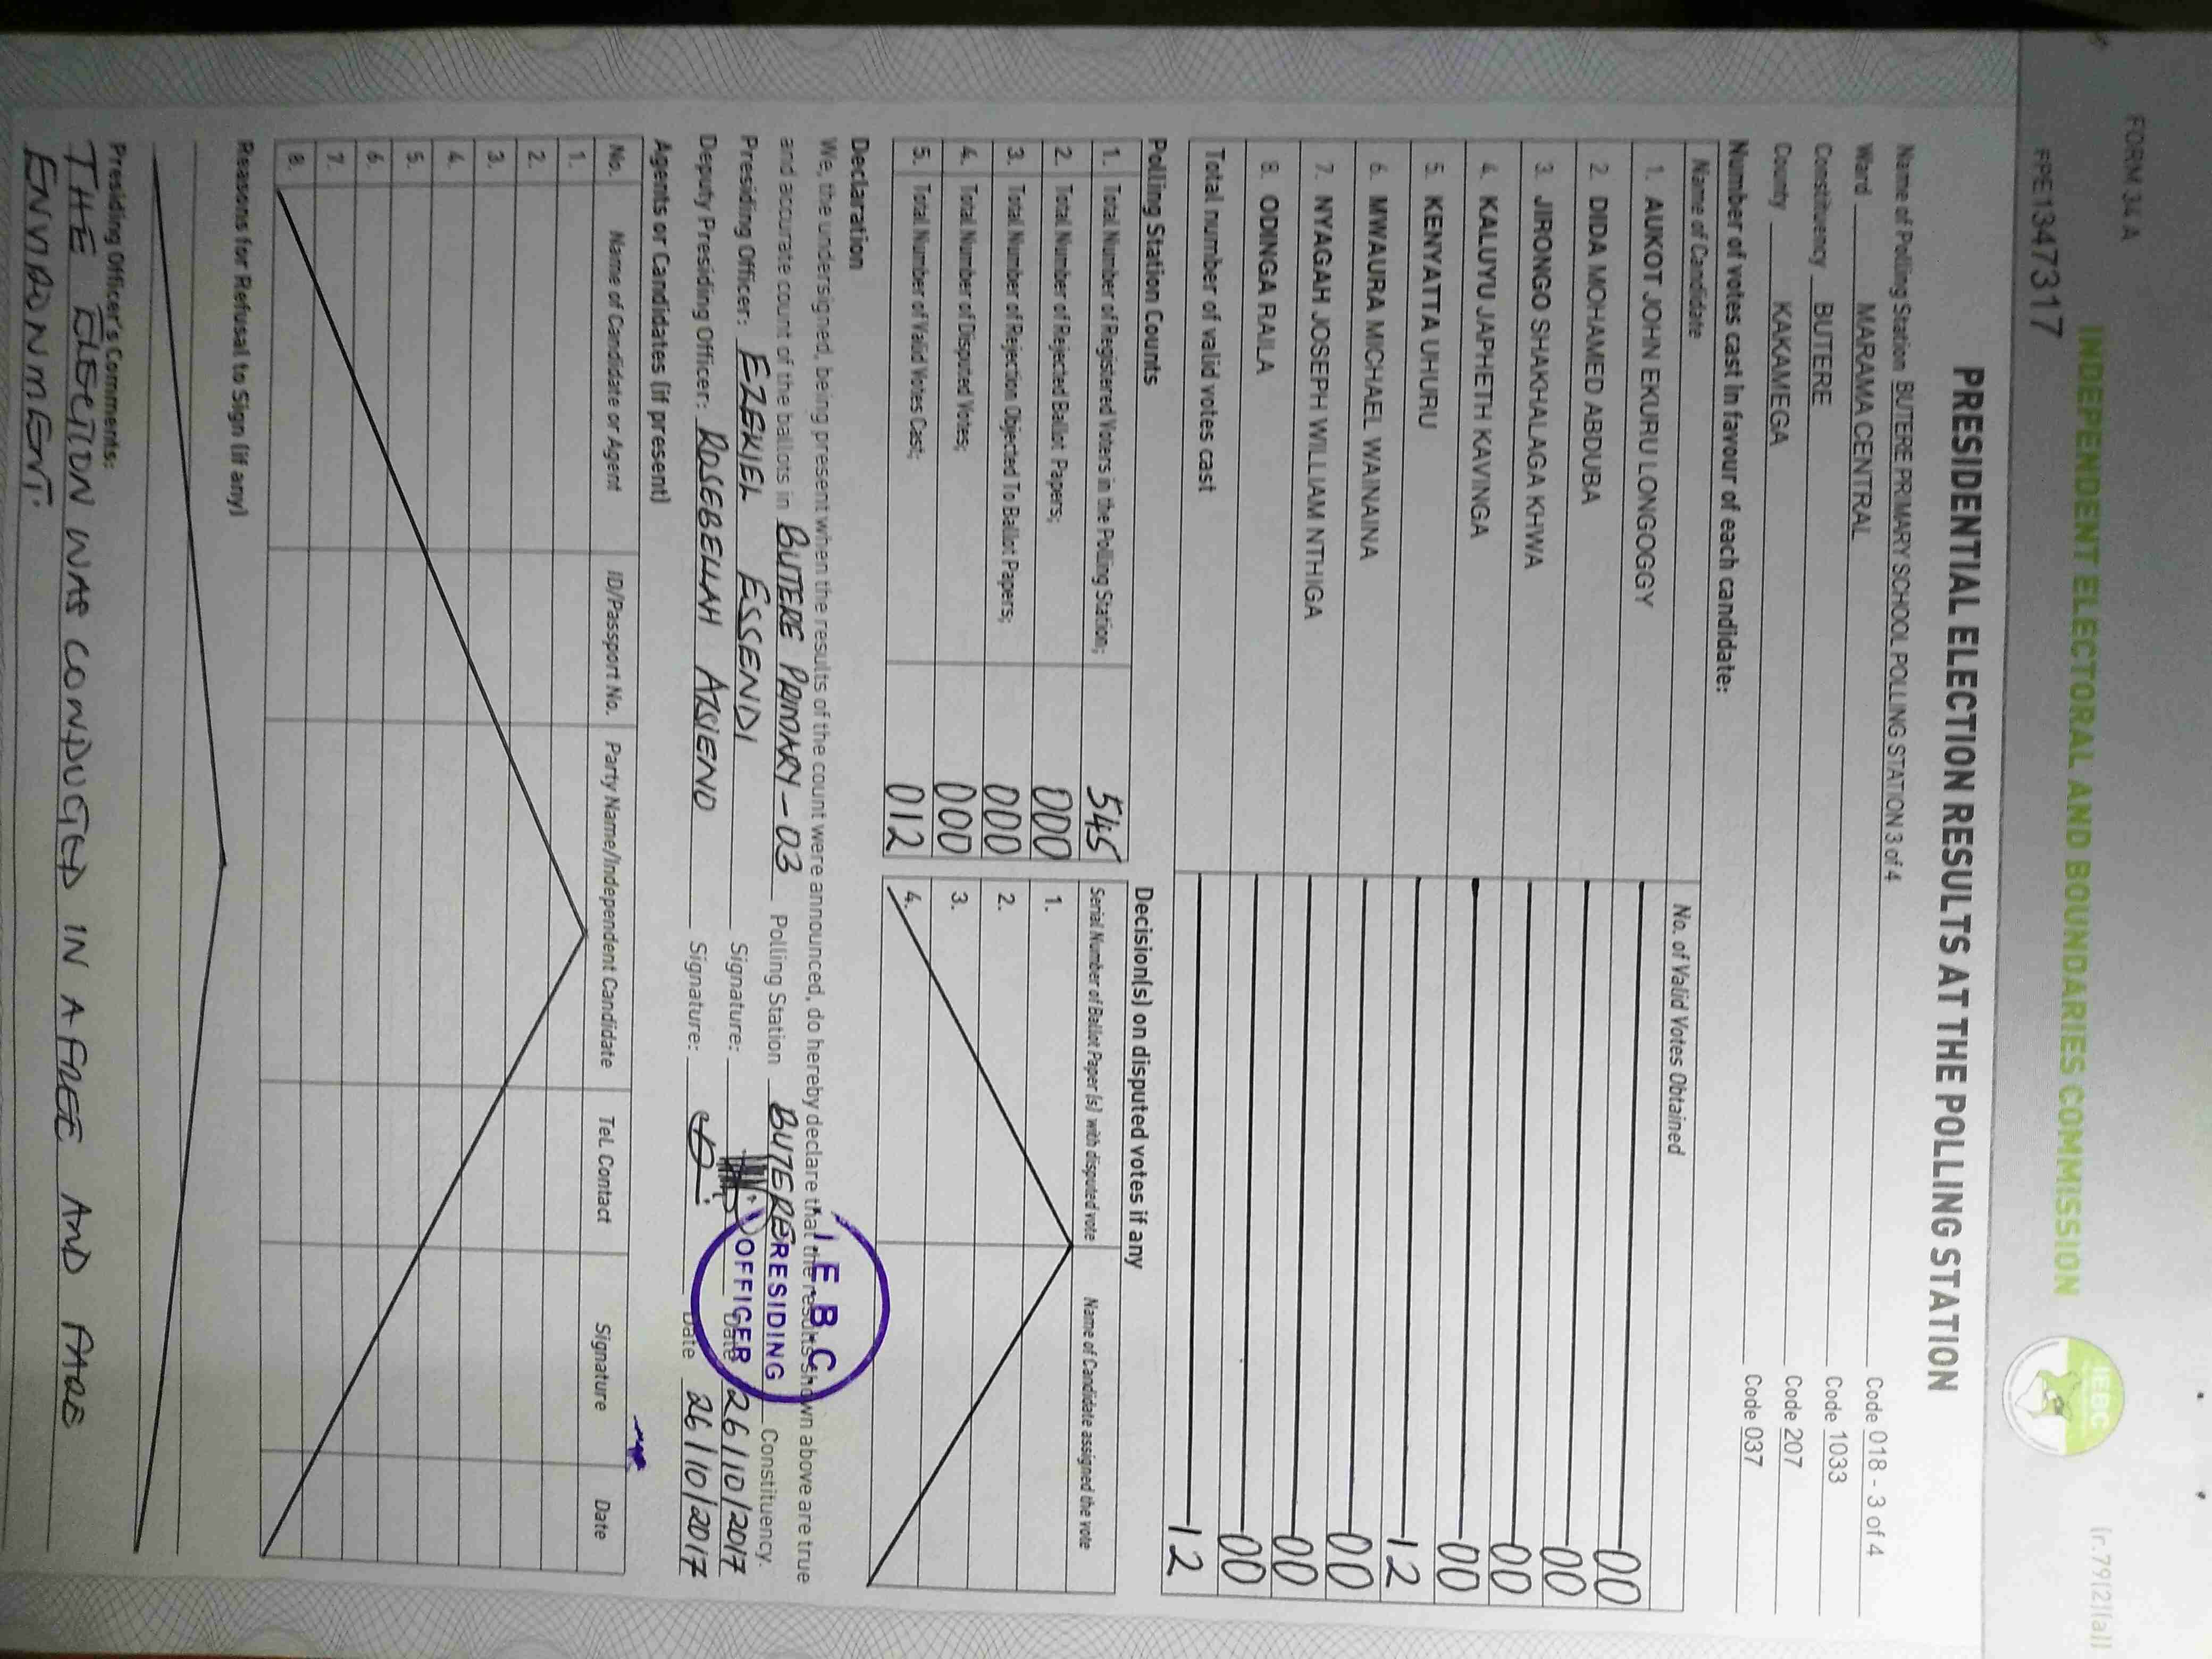 FORM 34 A
(r.79(2)(a))
INDEPENDENT ELECTORAL AND BOUNDARIES COMMISSION
IEBC
PPE1347317
PRESIDENTIAL ELECTION RESULTS AT THE POLLING STATION
Name of Polling Station BUTERE PRIMARY SCHOOL POLLING STATION 3 of 4 Code 018 - 3 of 4
Ward MARAMA CENTRAL Code 1033
Constituency BUTERE Code 207
County KAKAMEGA Code 037
Number of votes cast in favour of each candidate:
Name of Candidate No. of Valid Votes Obtained
1. AUKOT JOHN EKURU LONGOGGY 00
2. DIDA MOHAMED ABDUBA 00
3. JIRONGO SHAKHALAGA KHWA 00
4. KALUYU JAPHETH KAVINGA 00
5. KENYATTA UHURU 12
6. MWAURA MICHAEL WAINAINA 00
7. NYAGAH JOSEPH WILLIAM NTHIGA 00
8. ODINGA RAILA 00
Total number of valid votes cast 12
Polling Station Counts
1. Total Number of Registered Voters in the Polling Station; 545
2. Total Number of Rejected Ballot Papers; 000
3. Total Number of Rejection Objected To Ballot Papers; 000
4. Total Number of Disputed Votes; 000
5. Total Number of Valid Votes Cast; 012
Decision(s) on disputed votes if any
Serial Number of Ballot Paper (s) with disputed vote Name of Candidate assigned the vote
1.
2.
3.
4.
Declaration
We, the undersigned, being present when the results of the count were announced, do hereby declare that the results shown above are true
and accurate count of the ballots in BUTERE PRIMARY - 03 Polling Station BUTERE Constituency.
Presiding Officer: EZEKIEL ESSENDI Signature: Date 26/10/2017
Deputy Presiding Officer: ROSEBELLAH AKSIENO Signature: Date 26/10/2017
I.E.B.C
PRESIDING
OFFICER
Agents or Candidates (if present)
No. Name of Candidate or Agent ID/Passport No. Party Name/Independent Candidate Tel. Contact Signature Date
1.
2.
3.
4.
5.
6.
7.
8.
Reasons for Refusal to Sign (if any)
Presiding Officer's Comments:
THE ELECTION WAS CONDUCTED IN A FREE AND FAIRE
ENVIRONMENT.